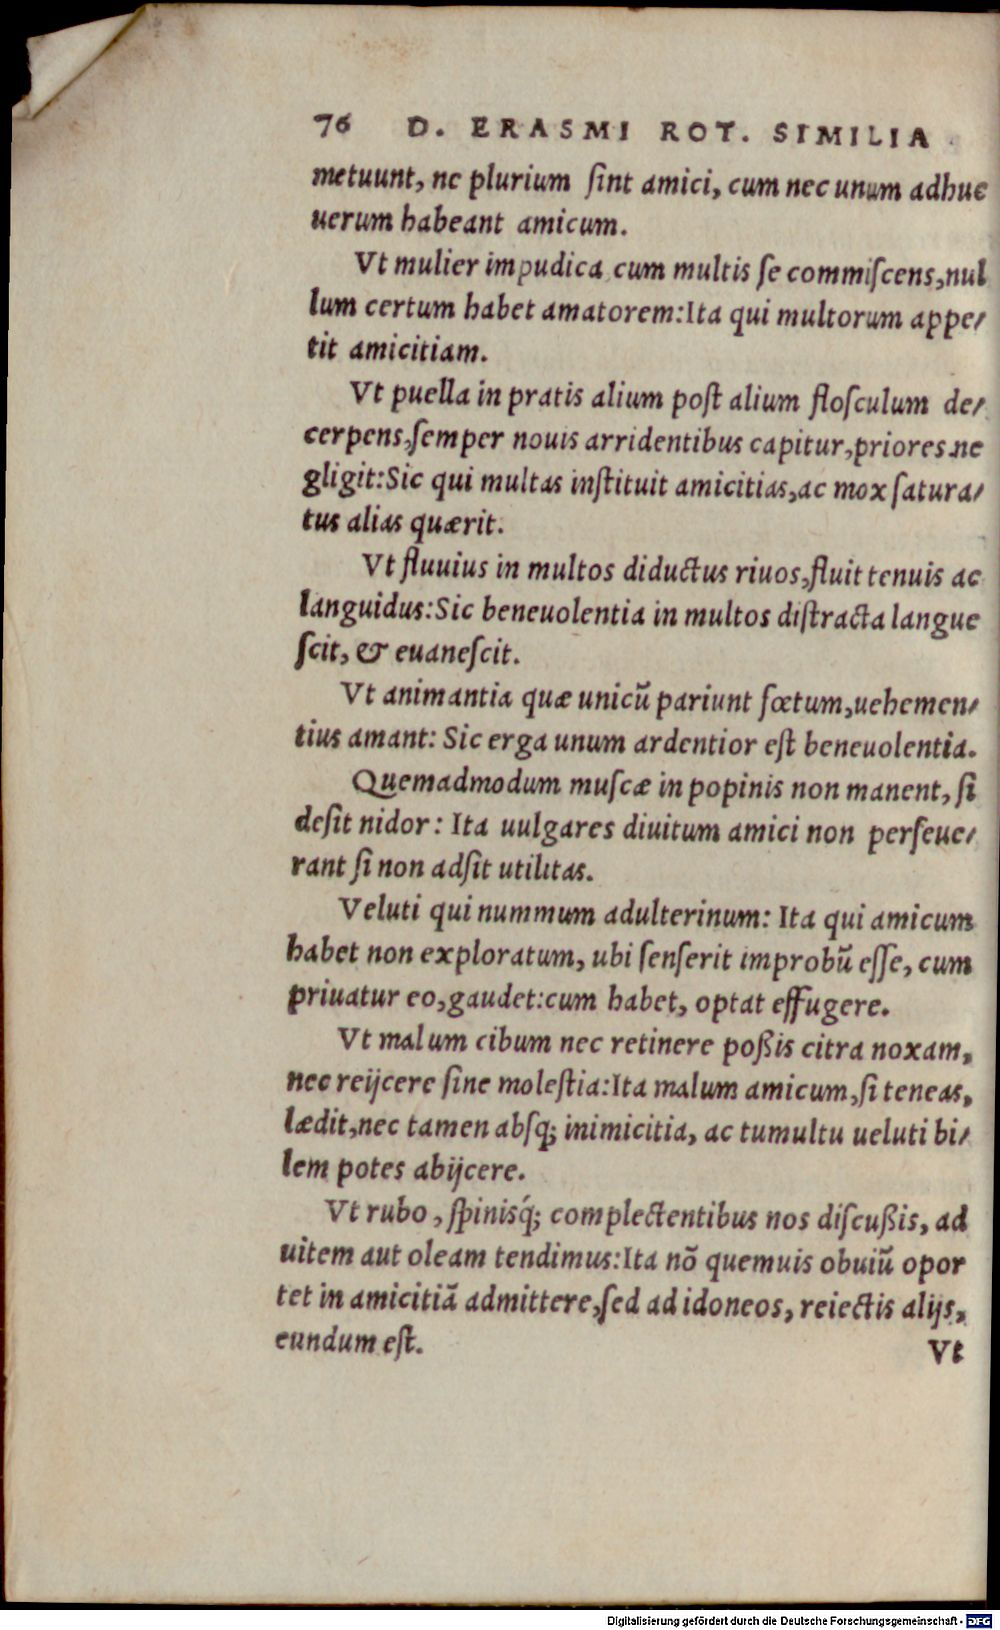 76 D. ERASMI ROT. SIMILIA
metuunt, ne plurium ſint amici, cum nec unum adhuc
uerum habeant amicum.
Vt mulier impudica cum multis ſe commiſcens, nul
lum certum habet amatorem: Ita qui multorum appe/
tit amicitiam.
Vt puella in pratis alium poſt alium floſculum de/
cerpens, ſemper nouis arridentibus capitur, priores ne
gligit: Sic qui multas inſtituit amicitias, ac mox ſatura/
tus alias quærit.
Vt fluuius in multos diductus riuos, fluit tenuis ac
languidus: Sic beneuolentia in multos diſtracta langue
ſcit, & euaneſcit.
Vt animantia quæ unicũ pariunt fœtum, uehemen/
tius amant: Sic erga unum ardentior eſt beneuolentia.
Quemadmodum muſcæ in popinis non manent, ſi
deſit nidor: Ita uulgares diuitum amici non perſeue/
rant ſi non adſit utilitas.
Veluti qui nummum adulterinum: Ita qui amicum
habet non exploratum, ubi ſenſerit improbũ eſſe, cum
priuatur eo, gaudet: cum habet, optat effugere.
Vt malum cibum nec retinere poßis citra noxam,
nec reijcere ſine moleſtia: Ita malum amicum, ſi teneas,
lædit, nec tamen abſq; inimicitia, ac tumultu ueluti bi/
lem potes abijcere.
Vt rubo, ſpinisq́; complectentibus nos diſcußis, ad
uitem aut oleam tendimus: Ita nõ quemuis obuiũ opor
tet in amicitiã admittere, ſed ad idoneos, reiectis alijs,
eundum eſt.
Vt
Digitalisierung gefördert durch die Deutsche Forschungsgemeinschaft - DFG